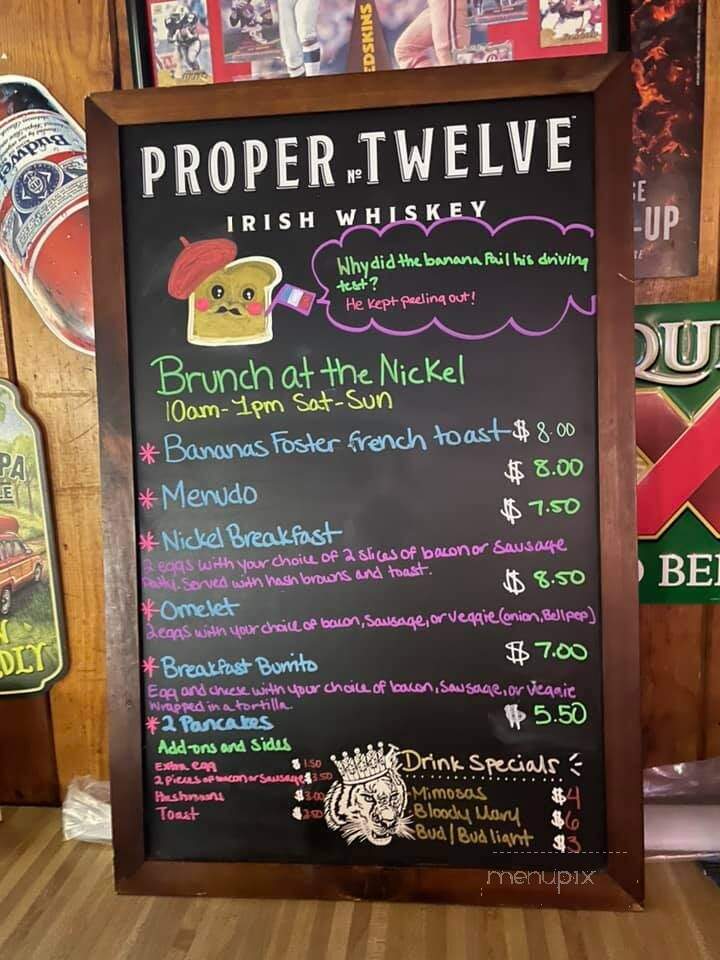 EDSKINS
Budweiser
PROPER No. TWELVE
IRISH WHISKEY
Why did the banana fail his driving
test?
He kept peeling out!
Brunch at the Nickel
10am-1pm Sat-Sun
* Bananas Foster french toast $ 8.00
* Menudo $ 8.00
* Nickel Breakfast $ 7.50
2 eggs with your choice of 2 slices of bacon or sausage
Patty. Served with hash browns and toast.
* Omelet $ 8.50
2 eggs with your choice of bacon, sausage, or veggie (onion, Bell pep)
* Breakfast Burrito $ 7.00
Egg and cheese with your choice of bacon, sausage, or veggie
wrapped in a tortilla
* 2 Pancakes $ 5.50
Add-ons and sides
Extra egg $ 1.50
2 pieces of bacon or sausage $3.50
Hashbrowns $3.00
Toast $2.50
Drink Specials
Mimosas $4
Bloody Mary $6
Bud / Bud light $3
menupix
SE
-UP
QU
BE
PA
LE
N
DLY